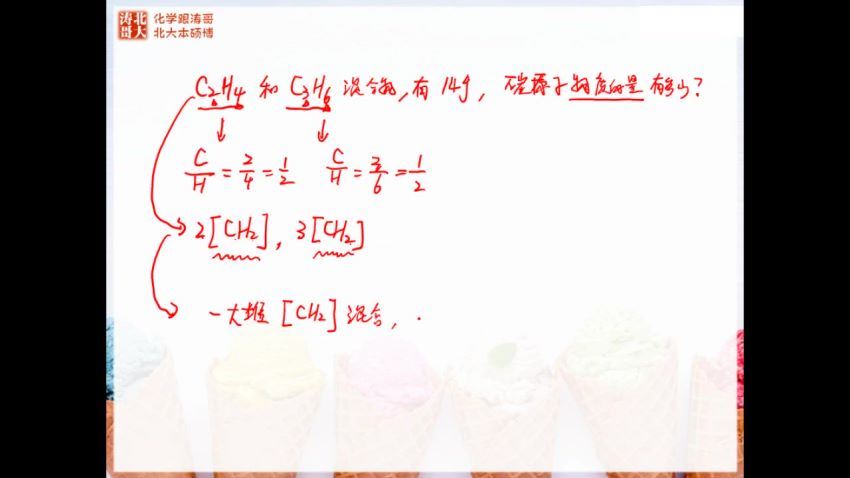 北大涛哥 化学跟涛哥
北大本硕博
C₂H₄ 和 C₃H₆ 混合物，有 14g，碳原子物质的量有多少？
C/H = 2/4 = 1/2 C/H = 3/6 = 1/2
2[CH₂]，3[CH₂]
一大堆 [CH₂] 混合，